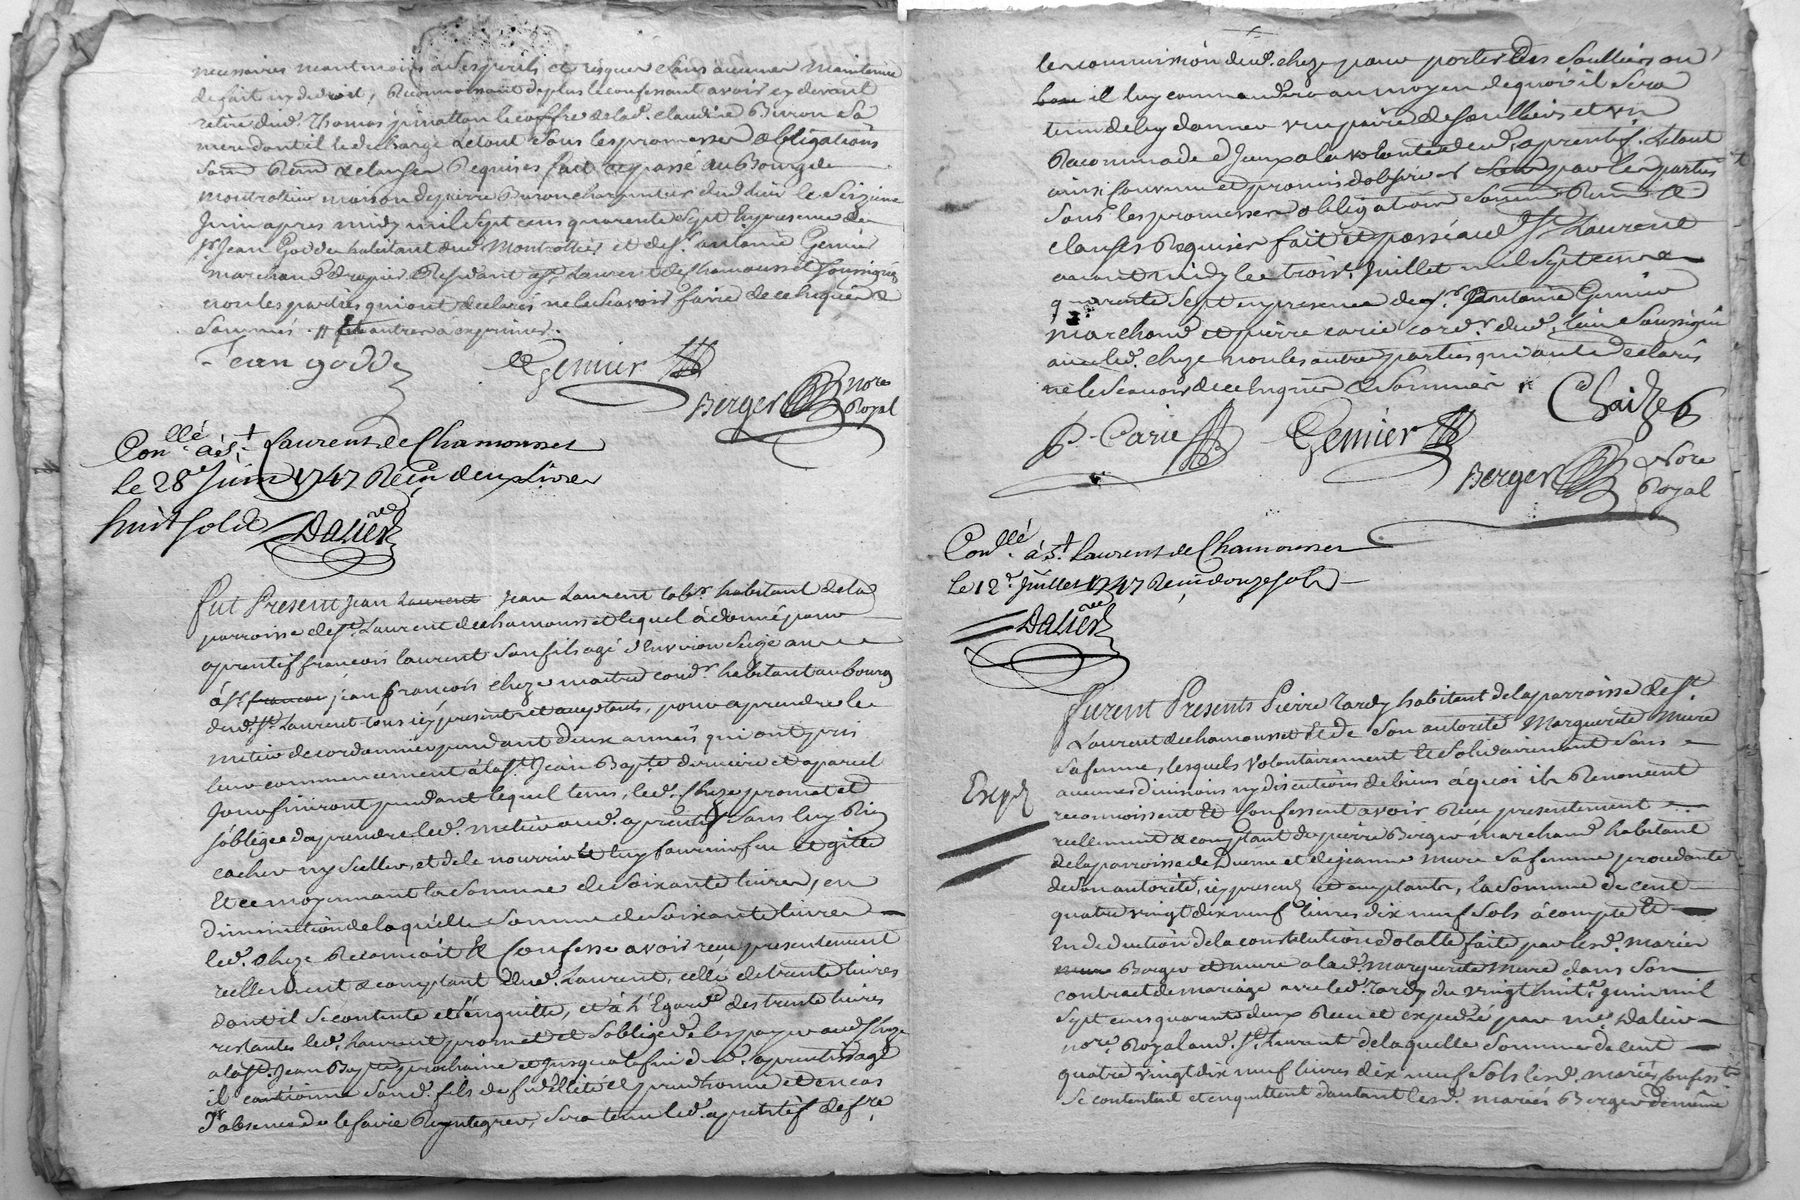 necessaires neantmoins à ses perils et risques sans aucune maintenue
de fait ny de droit, Reconnoissant de plus le confessant avoir cy devant
retiré dud. Thomas pinatton le coffre de lad. claudine Biron sa
mere dont il le decharge Le tout sous les promesses obligations
soum Renō & clauses Requises fait et passé au Bourg de
montrottier maison de pierre Buron charpentier dud lieu le seizieme
Juin apres midy mil sept cens quarente sept En presence de
sr. Jean Godde habitant dud. Montrottier et de sr. antoine Gemier
marchand drapier Residant a st. Laurent de Chamousset soussignés
non les parties qui ont declaré ne le scavoir faire de ce enquis &
sommés
Jean godde
Gemier
Berger nore Royal
Conllé à st. Laurent de Chamousset
le 28e Juin 1747 Reçu deux livres
huit sols
Dalier
Fut Present Jean Laurent Jean Laurent labr. habitant de la
parroisse de st. Laurent de chamousset lequel à donné pour
aprentif francois laurent son fils agé d'environ seize année
à sr. francois jean francois cheze maitre cordr. habitant au bourg
dud. st. Laurent tous icy presents et acceptants, pour aprendre le
metier de cordannier pendant deux années qui ont pris
leur commencement à la st. Jean Bapte. derniere et a pareil
Jour finiront pendant lequel tems, led. Cheze promet et
s'oblige d'aprendre led. metier aud. aprentif sans luy Rien
cacher ny sceller, et de le nourrir et luy fournir feu Et gitte
Et ce moyennant la somme de soixante livres, en
diminution de laquelle somme de soixante livres
led. cheze Reconnoit & Confesse avoir reçu presentement
reellement & comptant dud. Laurent, celle de trente livres
dont il se contente et l'en quitte, et à l'Egard des trente livres
restantes led. Laurent promet et s'oblige de les payer aud. Cheze
a la st. Jean Bapte prochaine et jusqu'a la fin dud. aprentissage
il cautionne sond. fils de fidellité et prudhomie et en cas
d'absence de le faire Reyntegrer, sera tenu led. aprentif de fre.
les commission dud. cheze pour porter les soulliers ou
bon il luy commandera au moyen de quoi il sera
tenu de luy donner une paire de soulliers et un
Racommodage d'Jceux a la volonté dud. aprentif. Le tout
ainsi convenu et promis d'observer par les parties
sous les promesses obligations soum Renō &
clauses Requises fait et passé aud St. Laurent
avant midy le trois. Juillet mil sept cens
quarente sept en presence de sr. Antoine Gemier
marchand et pierre carie cordr. dud. lieu soussignés
avec led. cheze non les autres parties qui ont declaré
ne le scavoir de ce Enquis & sommés
Chaize
P. Carie
Gemier
Berger Nore Royal
Conllé. à st. Laurent de Chamousset
le 12e. Juillet 1747 Reçu douze sols
Dalier
Furent Presents Pierre Tardy habitant de la parroisse de st.
Laurent de chamousset Et de son autorité Marguerite Mure
sa femme, lesquels volontairement Et solidairement sans
aucunes divisions ny discutions de biens à quoi ils Renoncent
Expé
reconnoissent Et Confessent avoir Reçu presentement
reellement & comptant de pierre Berger marchand habitant
de la parroisse de Duerne et de jeanne Mure sa femme procedante
de son autorité, icy presents et acceptants, la somme de cent
quatre vingt dix neuf livres dix neuf sols à compte Et
En deduction de la constitution dotalle faite par lesd. mariés
mure Berger et mure a lad. marguerite Mure dans son
contract de mariage avec led. Tardy du vingt huite. mil
sept cens quarente deux Reçu et expedié par me. Dalier
nore. Royal aud. st. Laurent de laquelle somme de cent
quatre vingt dix neuf livres dix neuf sols lesd. mariés
se contentent et en quittent d'autant lesd. mariés Berger de meme